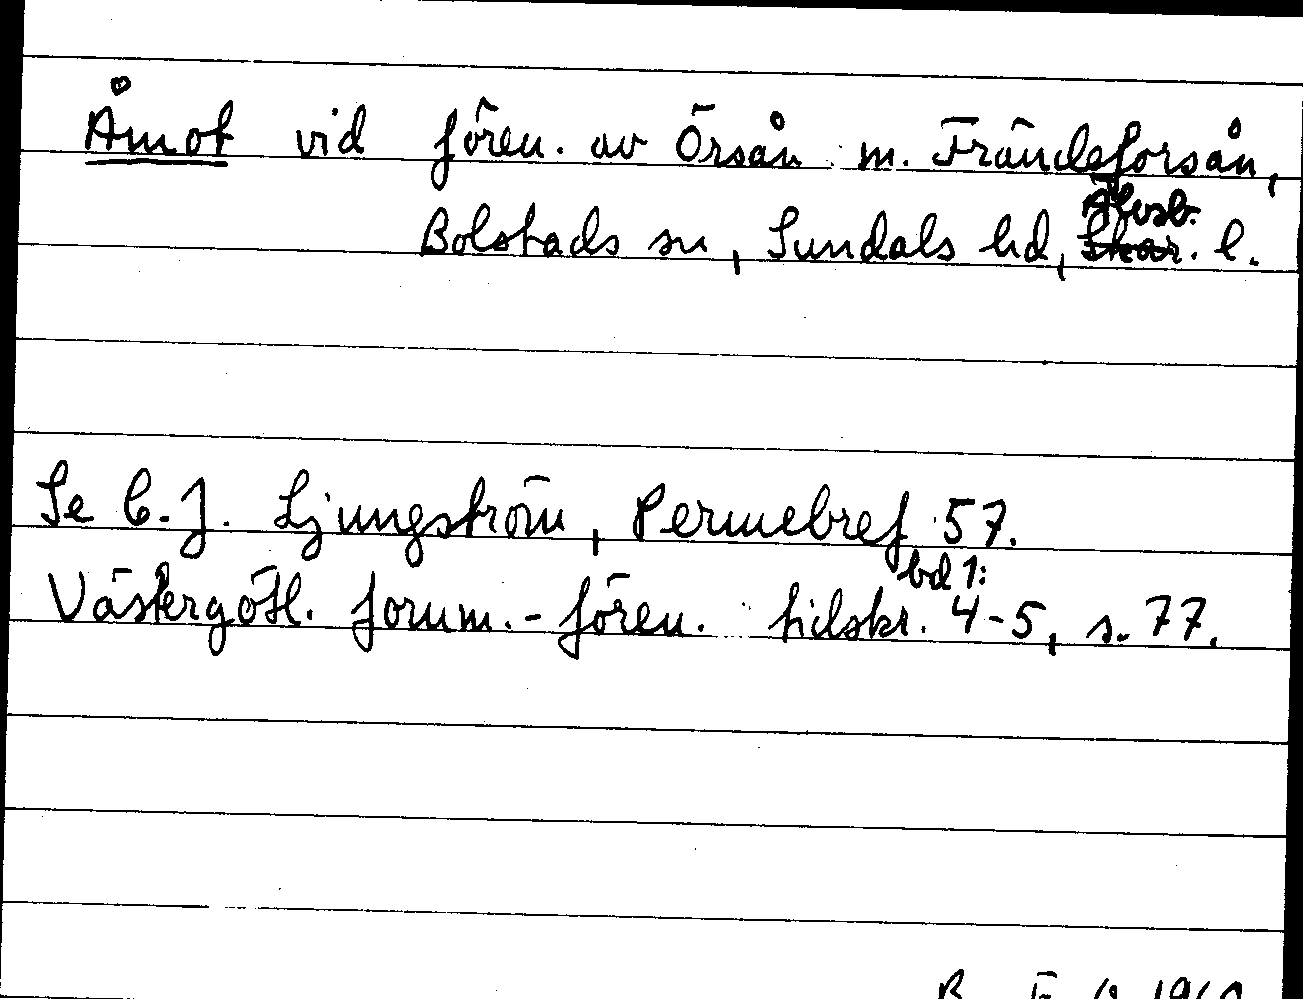 Åmot vid fören. av Örsån m. Frändeforsån,
Bolstads sn, Sundals hd, Skar. Älvsb. l.
Se C.J. Ljungström, Permebref 57.
Västergötl. fornm.-fören. tidskr. bd 1: 4-5, s. 77.